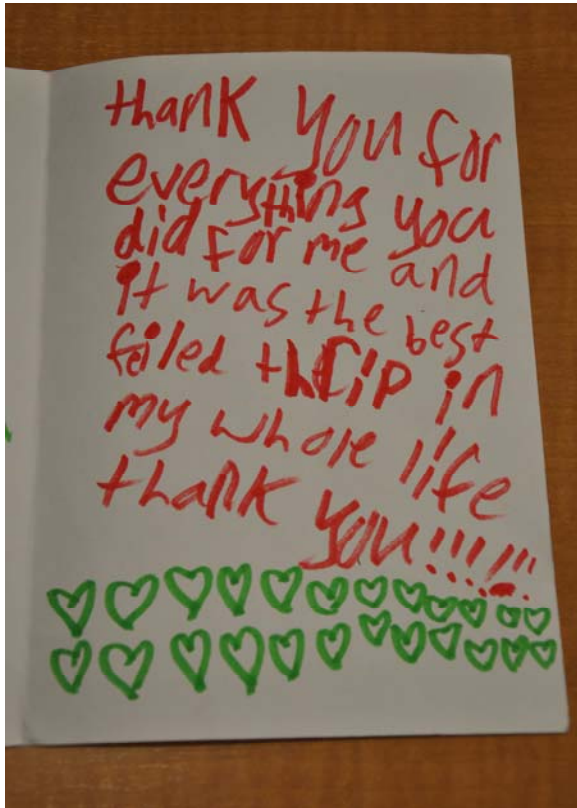 thank you for
everything you
did for me and
it was the best
foiled thrip in
my whole life
thank you!!!!!!